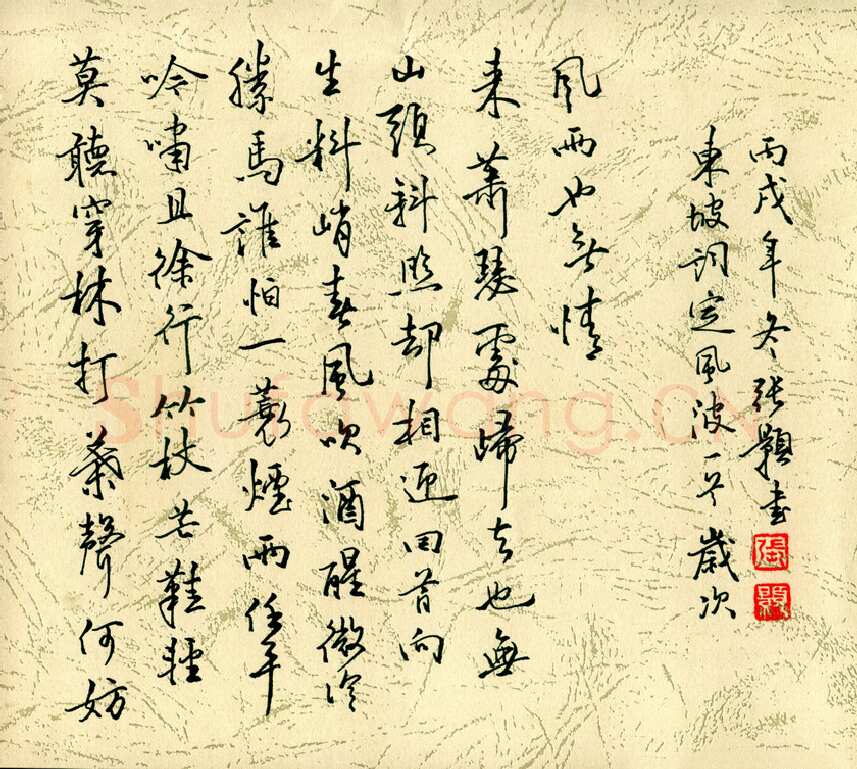 莫聽穿林打葉聲何妨
吟嘯且徐行竹杖芒鞋輕
勝馬誰怕一蓑煙雨任平
生料峭春風吹酒醒微冷
山頭斜照却相迎回首向
来蕭瑟處歸去也無
風雨也无情
東坡詞定風波一首歲次
丙戌年冬张書
Shufawang.CN